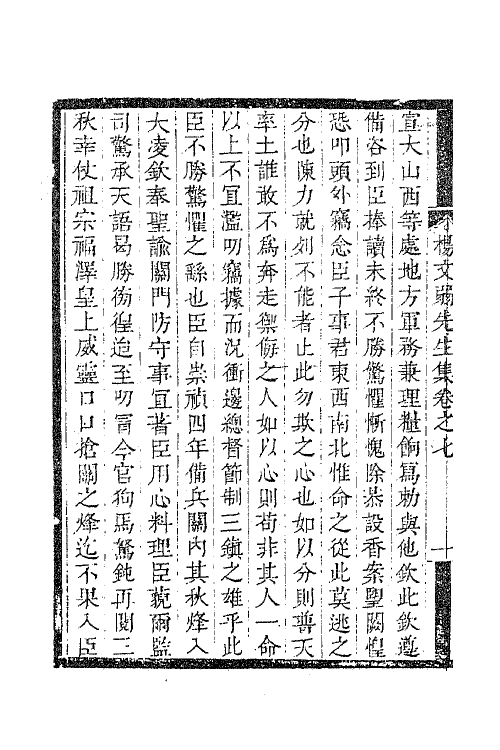 楊文弱先生集卷之七
一
宣大山西等處地方軍務兼理糧餉寫勅與他欽此欽遵
備咨到臣捧讀未終不勝驚懼慚愧除恭設香案望闕惶
恐叩頭外竊念臣子事君東西南北惟命之從此莫逃之
分也陳力就列不能者止此勿欺之心也如以分則普天
率土誰敢不爲奔走禦侮之人如以心則苟非其人一命
以上不宜濫叨竊據而況衝邊總督節制三鎮之雄乎此
臣不勝驚懼之繇也臣自崇禎四年備兵關內其秋烽入
大凌欽奉聖諭關門防守事宜著臣用心料理臣藐爾監
司驚承天語曷勝徬徨迨至叨冐今官狗馬駑鈍再閱三
秋幸仗祖宗福澤皇上威靈口口搶關之烽迄不果入臣